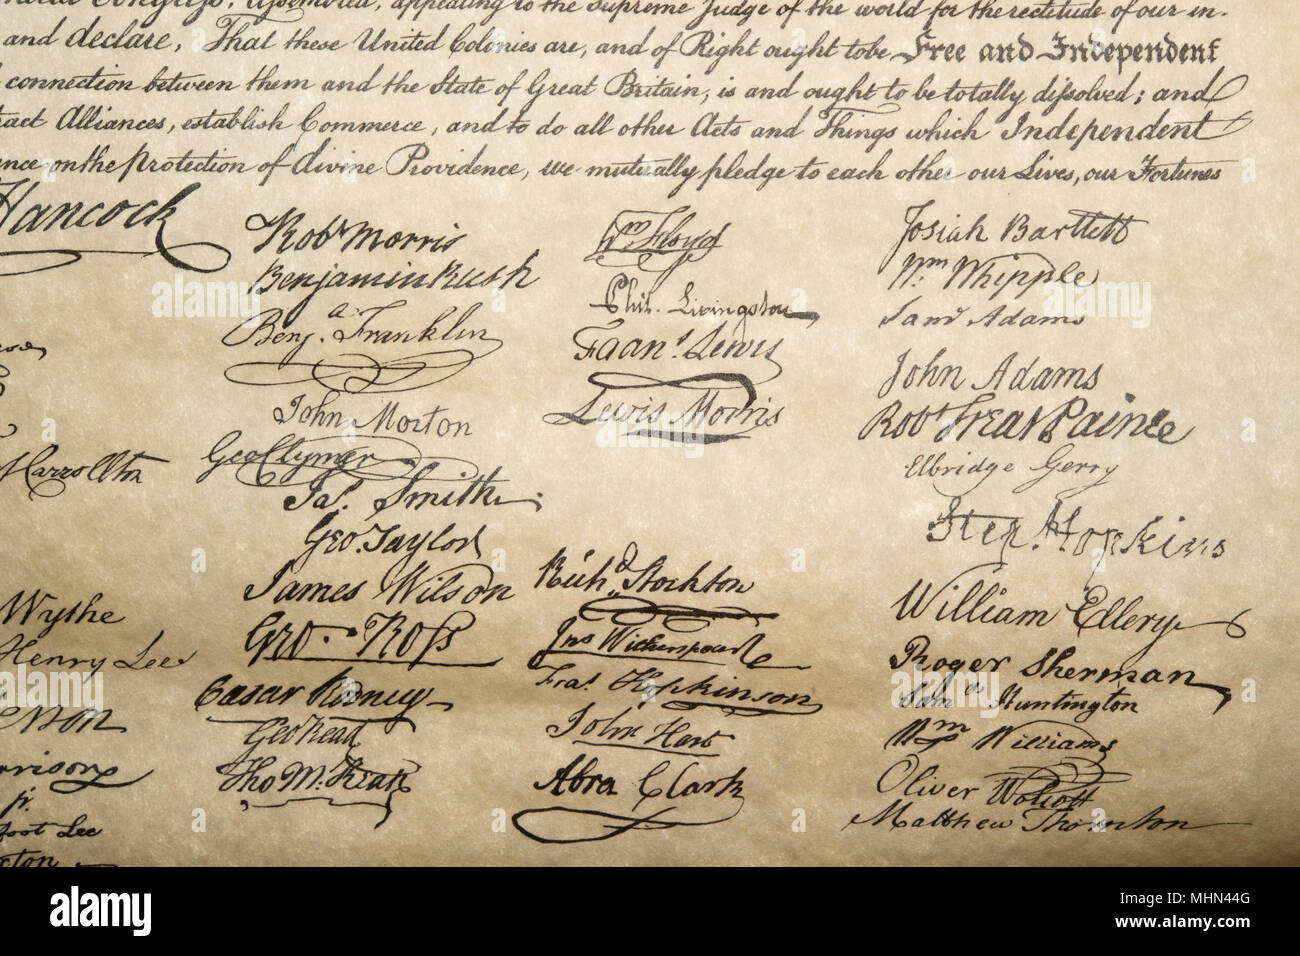 appealing to the Supreme Judge of the world for the rectitude of our in.
and declare, That these United Colonies are, and of Right ought to be Free and Independent
connection between them and the State of Great Britain, is and ought to be totally dissolved; and
Alliances, establish Commerce, and to do all other Acts and Things which Independent
on the protection of divine Providence, we mutually pledge to each other our Lives, our Fortunes
Hancock
Robt Morris
Benjamin Rush
Benja. Franklin
John Morton
Geo Clymer
Jas. Smith.
Geo. Taylor
James Wilson
Geo. Ross
Caesar Rodney
Geo Read
Tho M. Kean
Wm Floyd
Phil. Livingston
Frans. Lewis
Lewis Morris
Richd. Stockton
Jno Witherspoon
Fras. Hopkinson
John Hart
Abra Clark
Josiah Bartlett
Wm Whipple
Saml Adams
John Adams
Robt Treat Paine
Elbridge Gerry
Step. Hopkins
William Ellery
Roger Sherman
Samel Huntington
Wm Williams
Oliver Wolcott
Matthew Thornton
Carrollton
Wythe
Henry Lee
jr.
foot Lee
alamy
alamy
Image ID: MHN44G
www.alamy.com